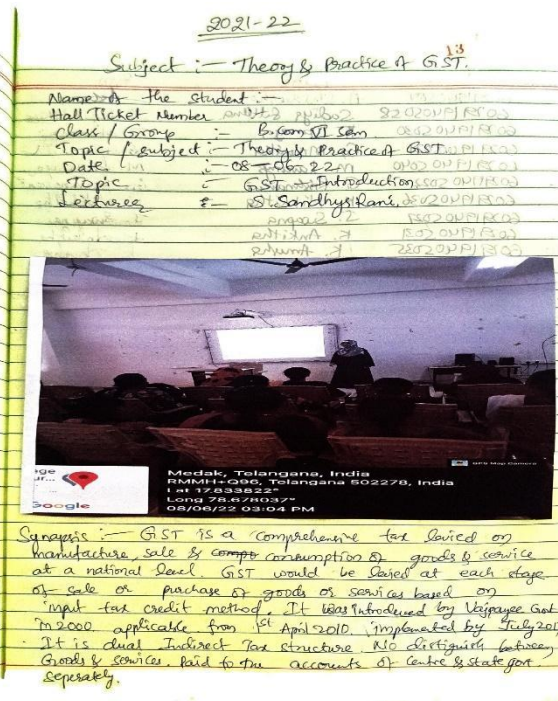 2021-22
13
Subject :- Theory & Practice of GST.
Name of the student :-
Hall Ticket Number
Class / Group :- B.com VI Sem
Topic / subject :- Theory & Practice of GST
Date :- 08-06-22
Topic :- GST - Introduction
Lecturer :- S. Sandhya Rani.
GPS Map Camera
Google
Medak, Telangana, India
RMMH+Q96, Telangana 502278, India
Lat 17.833822°
Long 78.678037°
08/06/22 03:04 PM
Synapsis :- GST is a comprehensive tax levied on
manufacture, sale & consumption of goods & service
at a national level GST would be levied at each stage
of sale or purchase of goods or services based on
input tax credit method. It was introduced by Vajpayee Govt
in 2000 applicable from 1st April 2010, implemented by July 201
It is dual Indirect Tax structure. No distiguish between
Goods & services. Paid to the accounts of Centre & state govt
seperately.